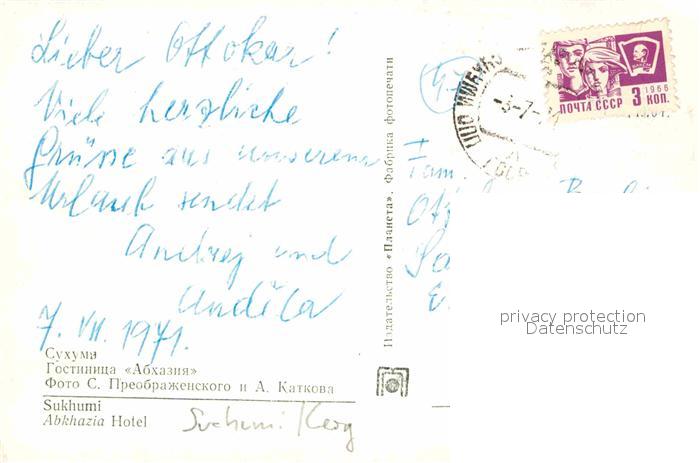 Lieber Ottokar!
Viele herzliche
Grüsse aus unserem
Urlaub sendet
Andrej und
7. VII. 1971.
Сухуми
Гостиница «Абхазия»
Фото С. Преображенского и А. Каткова
Sukhumi
Abkhazia Hotel
Suchumi
Издательство «Планета». Фабрика фотопечати
1966
ПОЧТА СССР 3 КОП.
Fam.
privacy protection
Datenschutz